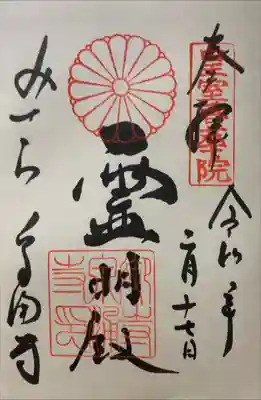 奉拝
皇室香華院
令和 年
二月十七日
霊明殿
みてら 泉涌寺